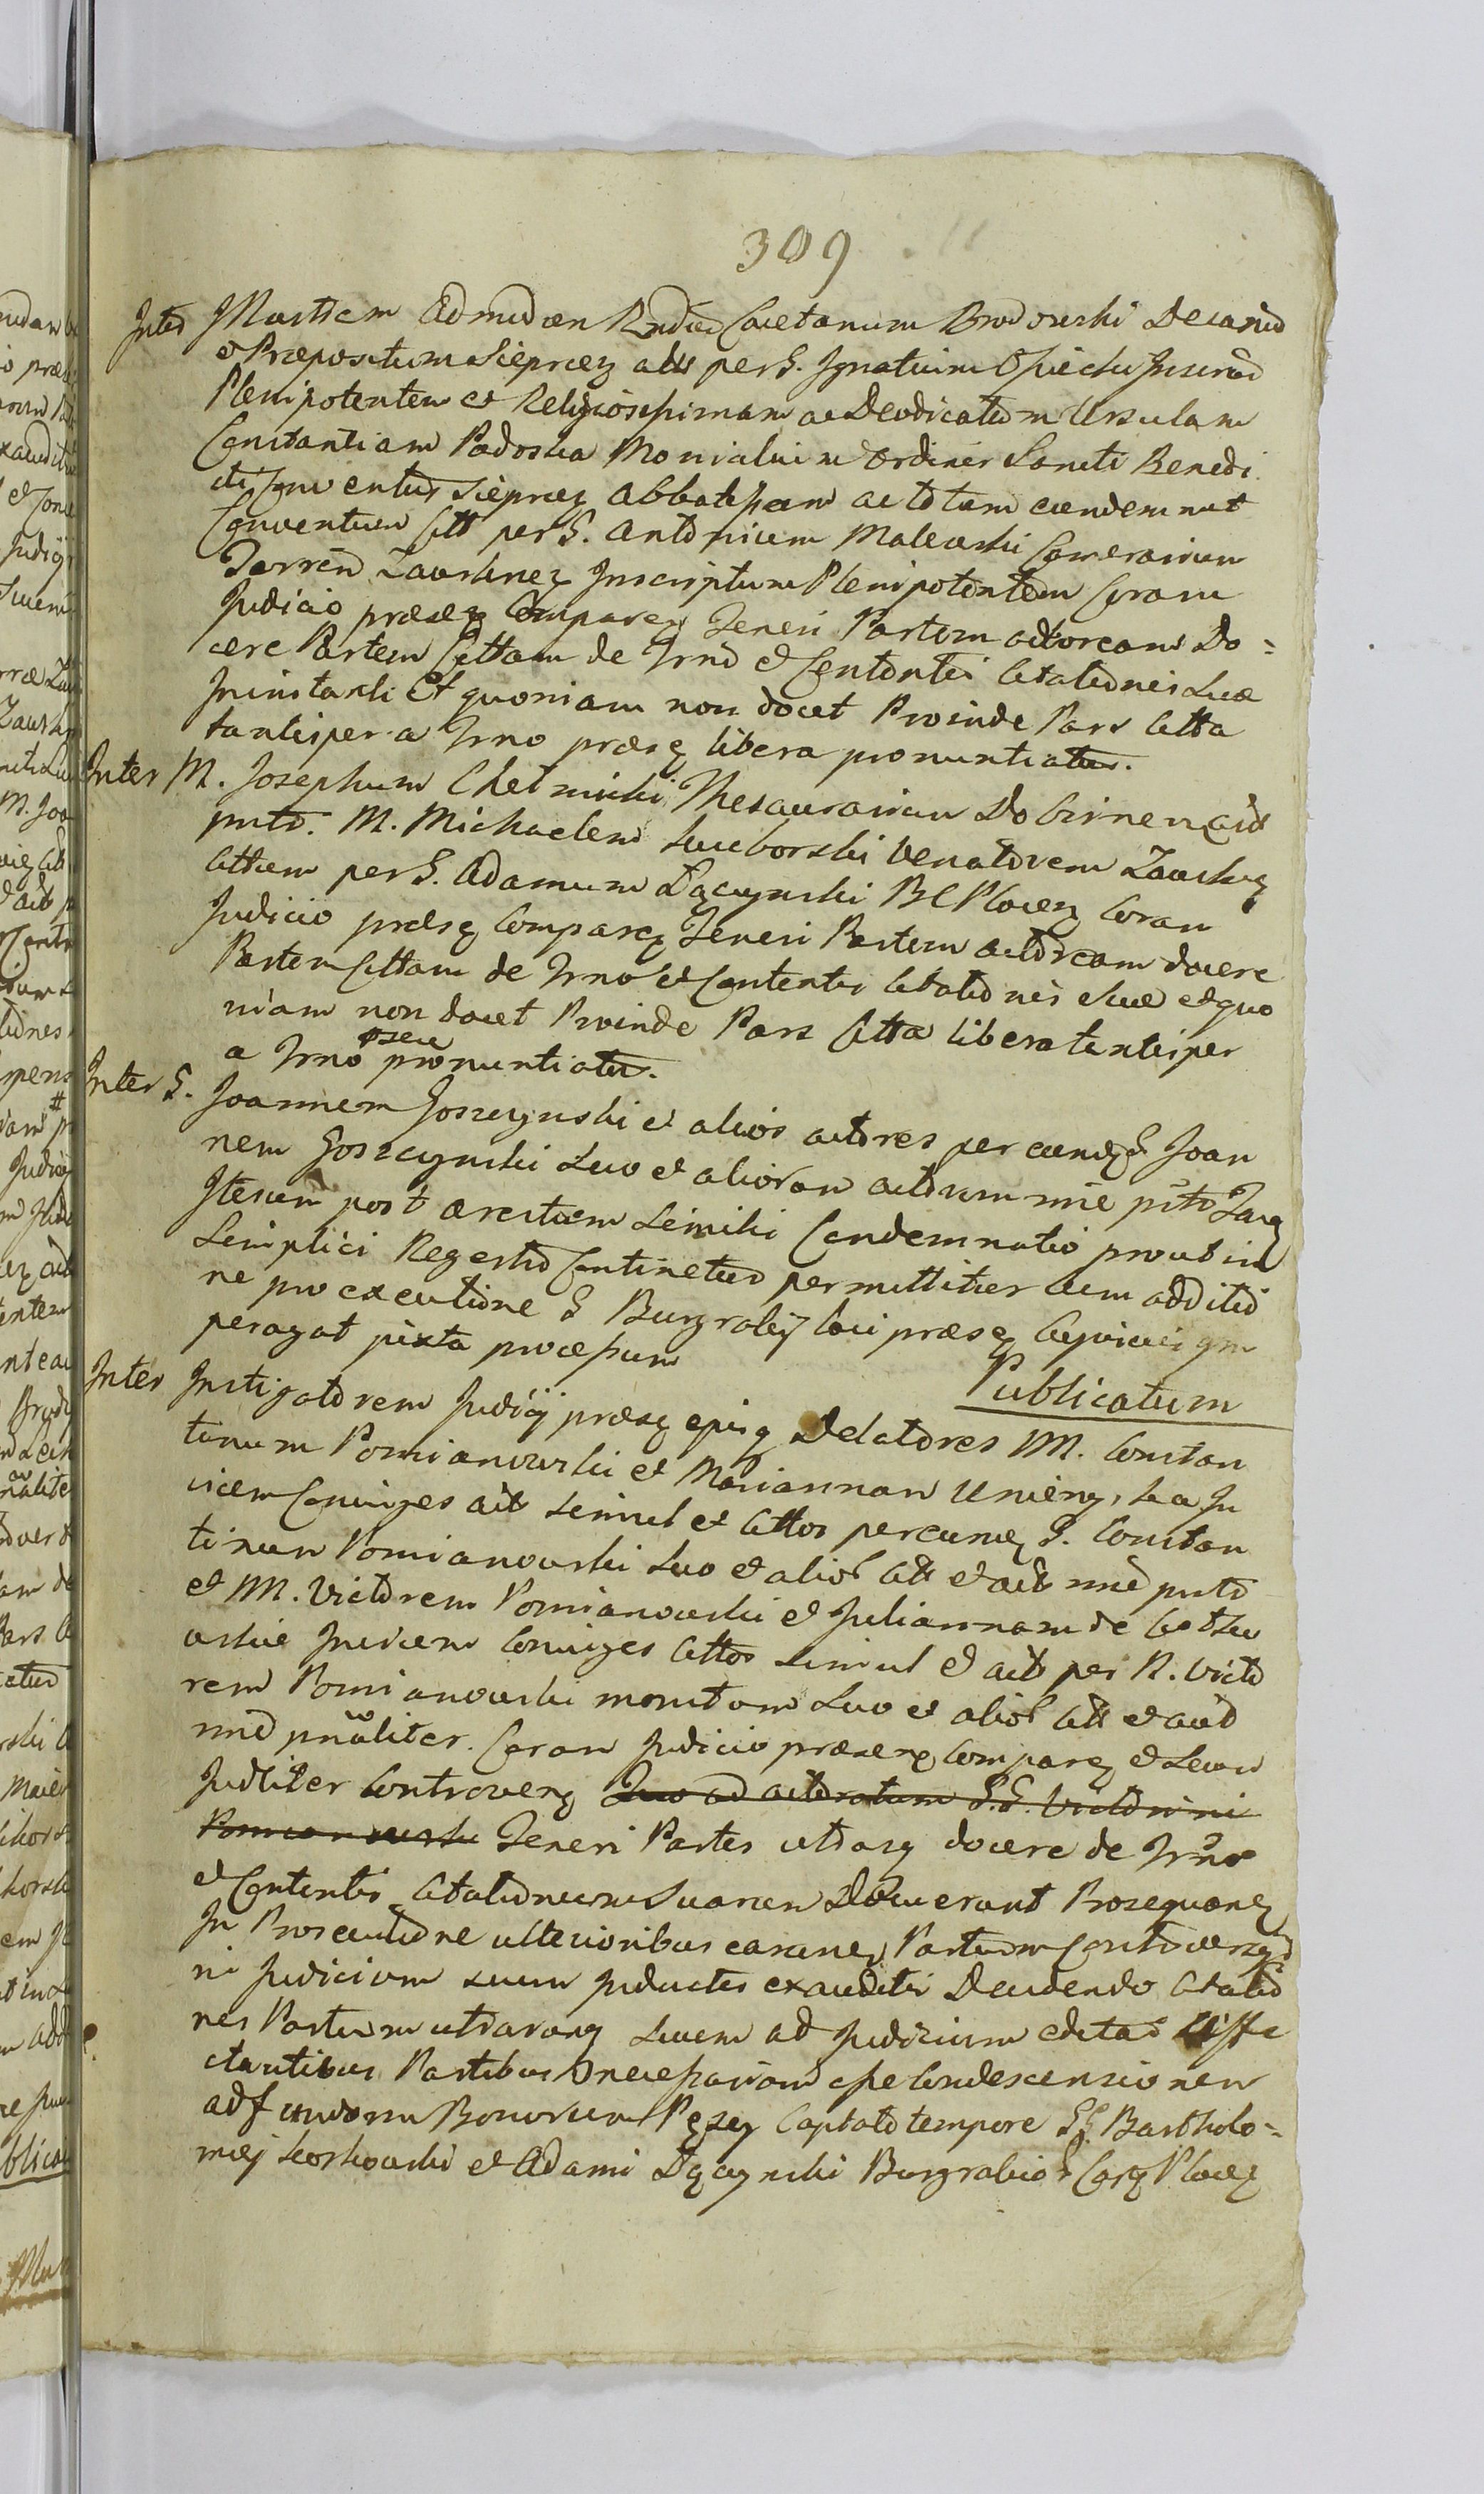 309
Inter Illustrem Admodum Rndum Caietanum Brodowski Decanum
et Præpositum Sieprcen actt per G. Ignatium Opiechi Inscriptum
Plenipotentem et Religiosissimam ac Deodicatam Ursulam
Constantiam Padoska Monialium Ordinis Sancti Benedi
cti Conventus Sieprcen Abbatissam ac totum eundemmet
Conventum Citt per G. Antonium Malewski Camerarium
Terren Zawskrnen Inscriptum Plenipotentem Coram
Judicio præsen Comparen Teneri Partem actoream Do=
cere Partem Cittam de Trno et Contentis Citationis Suæ
In instanti Et quoniam non docet Proinde Pars Citta
tantisper a Trno præsen libera pronuntiatur.
Inter M. Josephum Chełmicki Thesaurarium Dobrinen actt
pntr. M. Michaelem Suuborski Venatorem Zawskrnen
Cittum per G. Adamum Dączynski BC Plocen Coram
Judicio præsen Comparen Teneri Partem actoream docere
Partem Cittam de Trno et Contentis Citationis Suæ et quo
niam non docet Proinde Pars Citta libera tantisper
a Trno psen pronuntiatur.
Inter G. Joannem Goszczynski et alios actores per eundem G. Joan
nem Goszczynski Suo et aliorum actorum nnie pntr
Iterum post arestum Simili Condemnatio prout in
Simplici Regestro Continetur permittitur cum additio
ne pro executione G Burgrabij loci præsen Cujusvis qm
peragat juxta processum
Publicatum
Inter Instigatorem Judicij præsen ejusq Delatores M. Constan
tinum Pomianowski et Mariannam Unierzyska In
vicem Conjuges actt Simul et Cittos per eundem G. Constan
tinum Pomianowski Suo et alior Citt et actt nnie pntr
et M. Victorem Pomianowski et Juliannam de
Invicem Conjuges Cittos Simul et actt per N. Victo
rem Pomianowski maritum Suo et alior Citt et actt
nnie pnaliter. Coram Judicio præsen Comparen et Secum
Judliter Controverten Quo ad actoratum G.G. Victorini
Pomianowski Teneri Partes utrasq docere de Trno
et Contentis Citationum Suarum Docuerunt Prosequanen
In Prosecutione ulterioribus earunem Partium Controversijs
ni Judicium suum inductis exauditis Decidendo Citatio
nes Partium utrarunq Suum ad Judicium editas Affe
ctantibus Partibus necessariam esse Condescensionem
ad fundum Bonorum Captato tempore GG Bartholo=
mæj Kosskowski et Adami Dączynski Burgrabior Cast Plocen